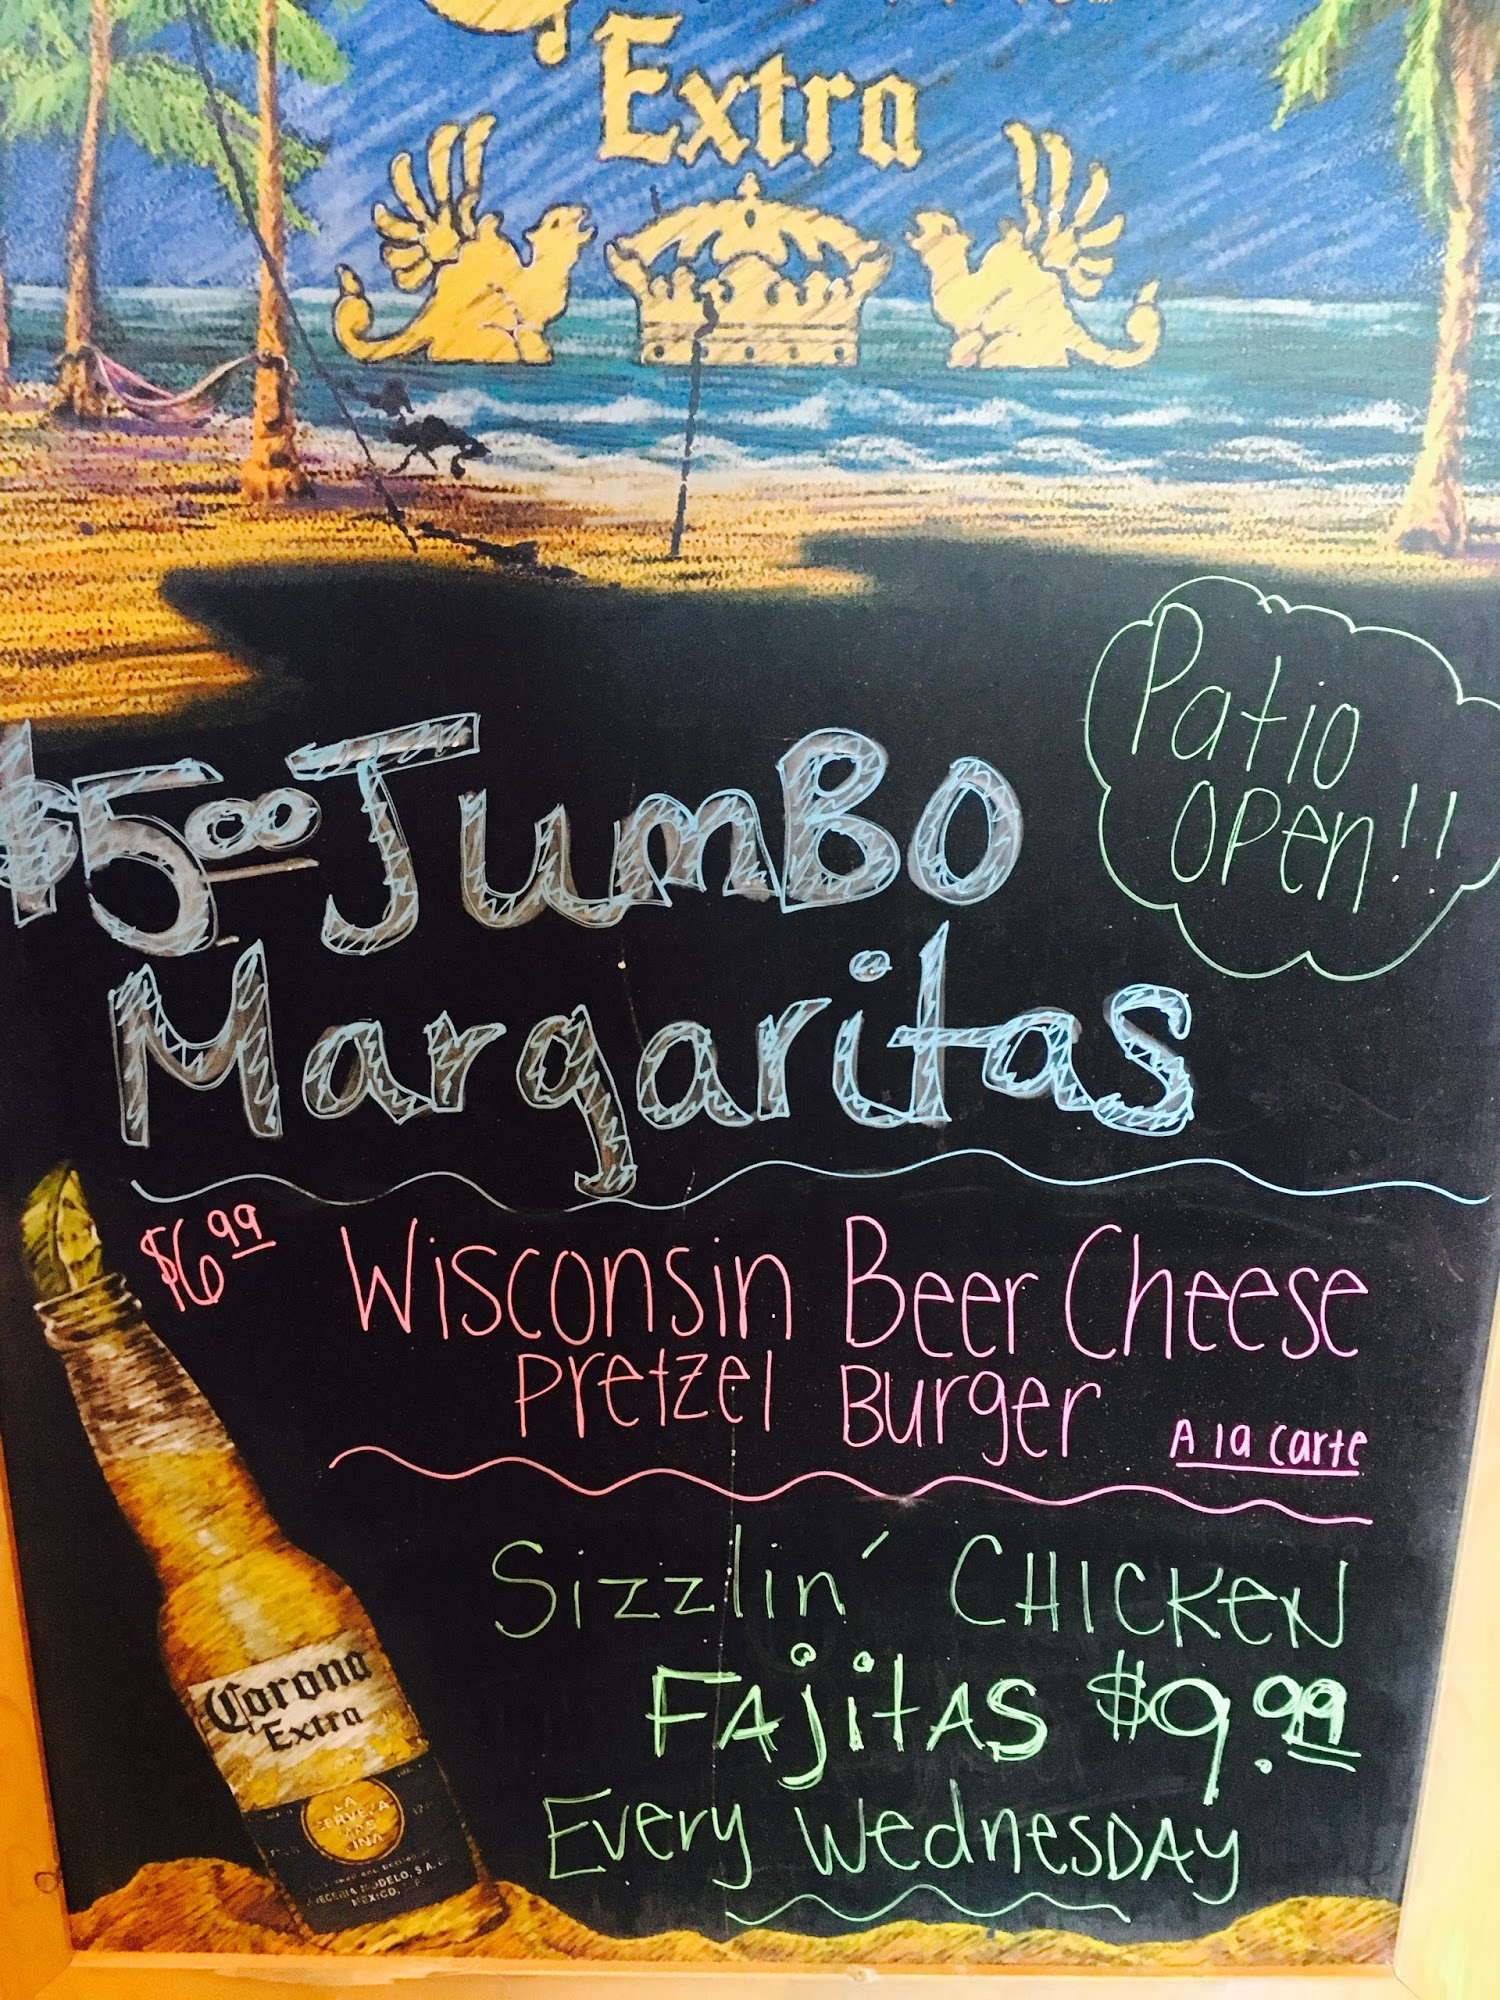 Extra
Patio
open!!
$5.00 Jumbo
Margaritas
$6.99 Wisconsin Beer Cheese
Pretzel Burger A la carte
Sizzlin' CHICKeN
FAjitAS $9.99
Every WednesDAY
Corona
Extra
LA
CERVEZA
MAS
FINA
MEXICO,